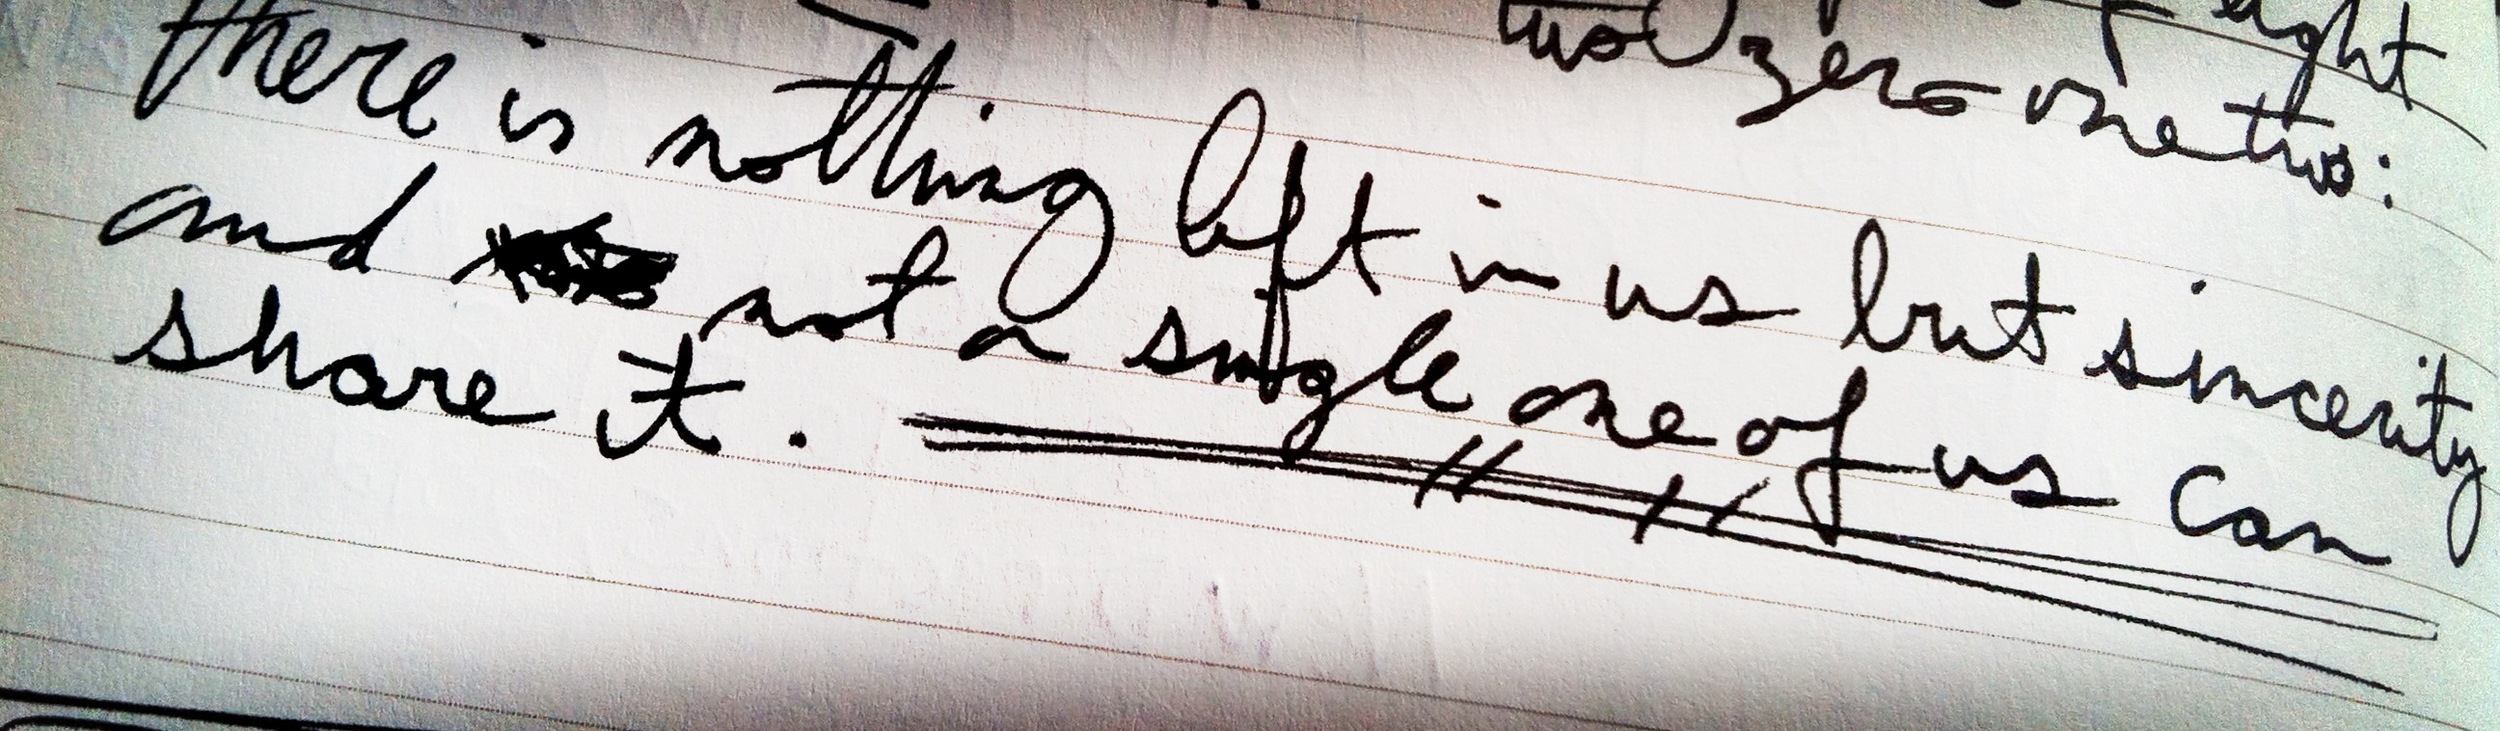 eight
two zero one two:
there is nothing left in us but sincerity
and not a single one of us can
share it.